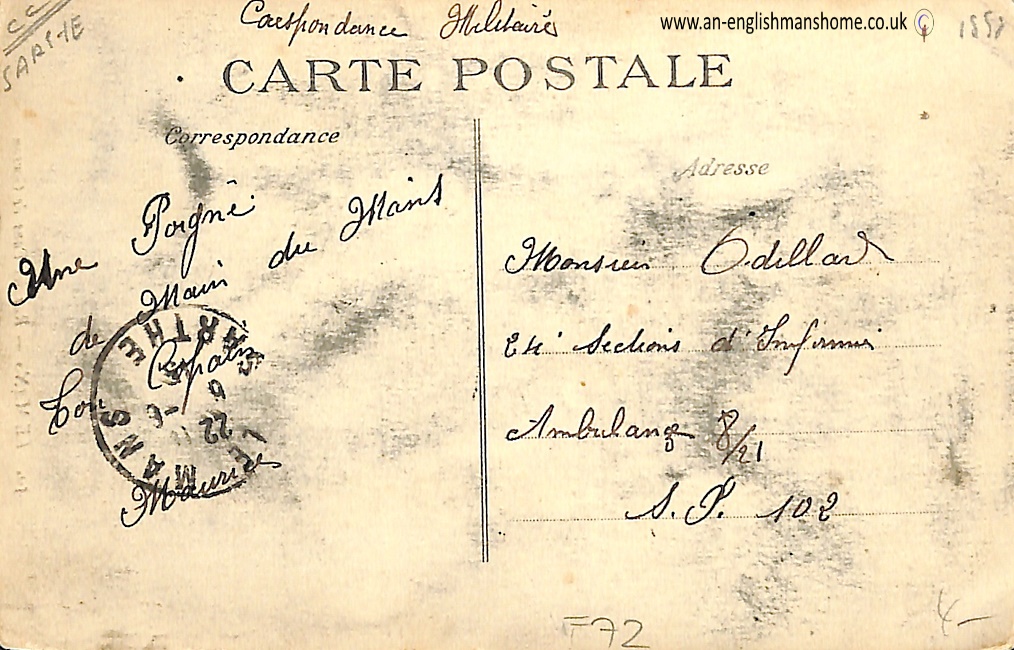 Caespondance Militaire
www.an-englishmanshome.co.uk
SARTHE
CARTE POSTALE
Correspondance
Une Poigné
de Main du Mans
Ton Copain
Maurice
LE MANS SARTHE
22
Adresse
Monsieur Odillard
24e Sections d'Infirmier
Ambulance 8/21
S. P. 102
F72
4-